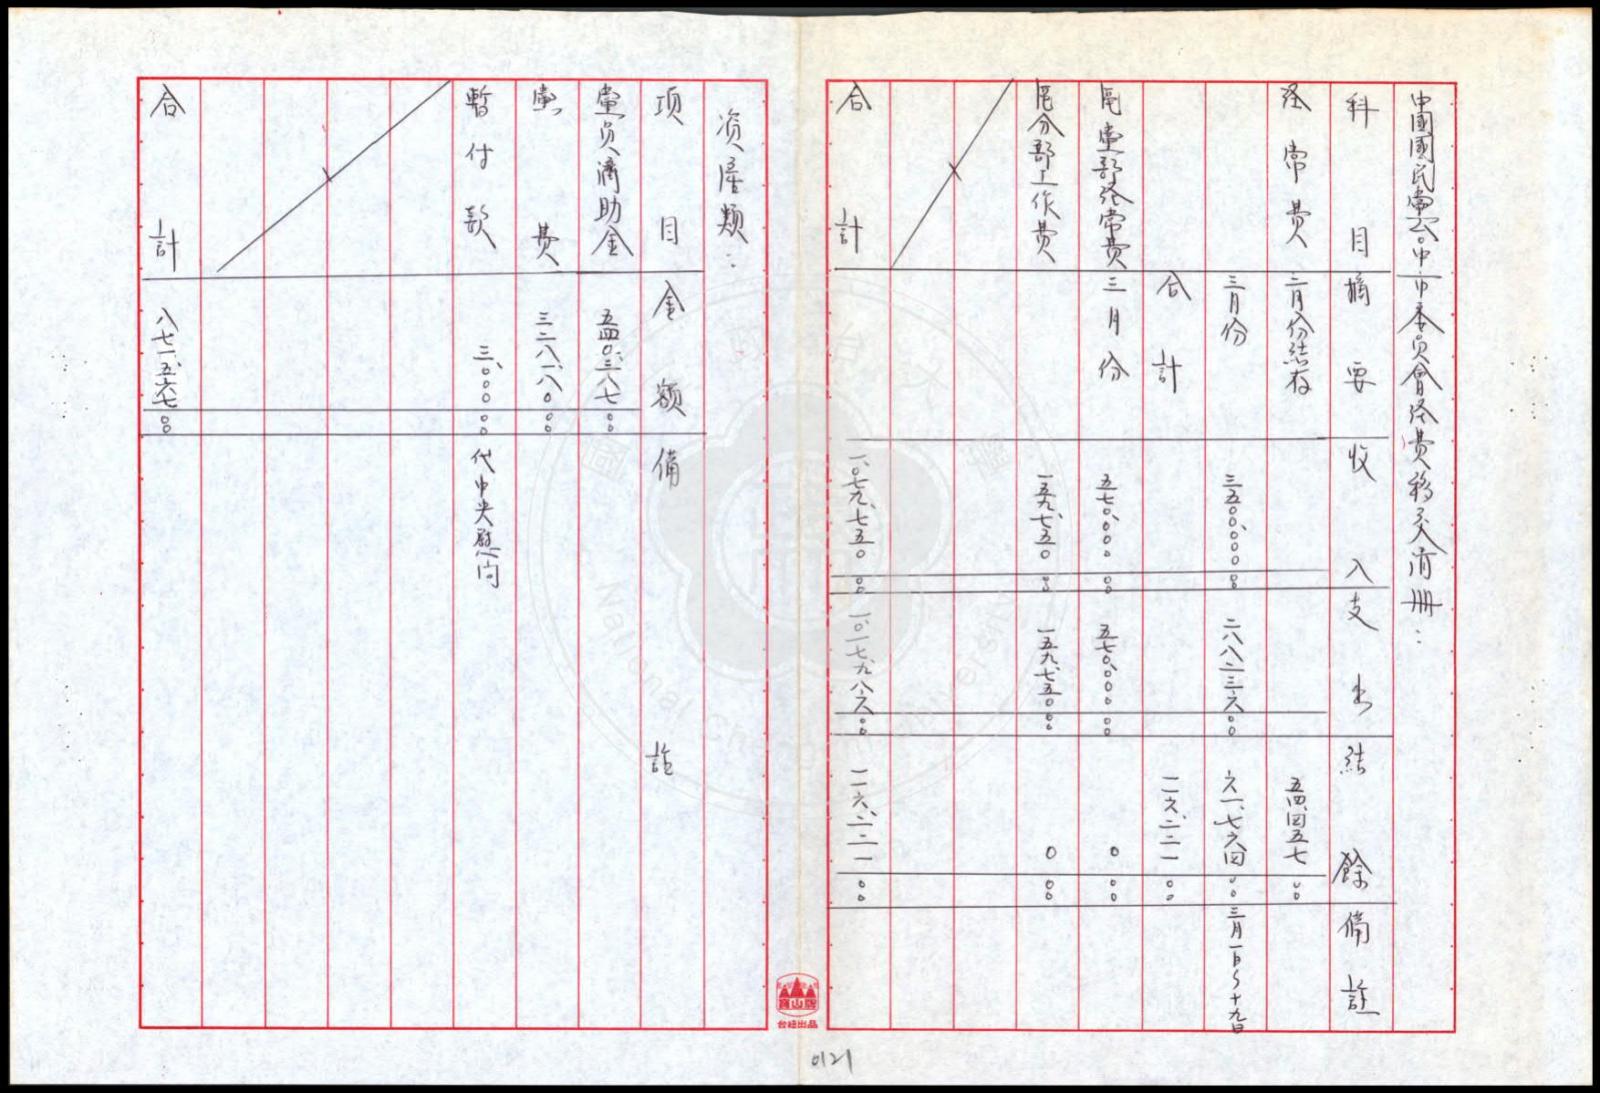 中國國民黨台中市委員會經費移交清冊：
科目 摘要 收入 支出 結餘 備註
經常費 二月份結存 五四、四五七〇〇
三月份 三五〇、〇〇〇〇〇 二八八、二三六〇〇 六一、七六四〇〇 三月一日〜十九日
合計 一一六、二二一〇〇
區黨部經常費 三月份 五七〇、〇〇〇〇〇 五七〇、〇〇〇〇〇 〇〇〇
區分部工作費 一五九、七五〇〇〇 一五九、七五〇〇〇 〇〇〇
合計 一、〇七九、七五〇〇〇 一、〇一七、九八六〇〇 一一六、二二一〇〇
資產類：
項目 金額 備註
黨員濟助金 五四〇、三八七〇〇
黨費 三二八、一八〇〇〇
暫付款 三、〇〇〇〇〇 代中央慰問
合計 八七一、五六七〇〇
寶山牌
台紐出品
0121
National Chengchi University